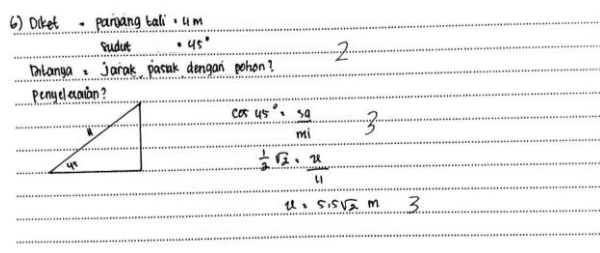 6) Diket = panjang tali = 4 m
Sudut = 45°
Ditanya = jarak pasak dengan pohon?
2
Penyelesaian?
cos 45° = sa
mi
3
11
45
1/2 √2 = x
11
x = 5.5√2 m
3